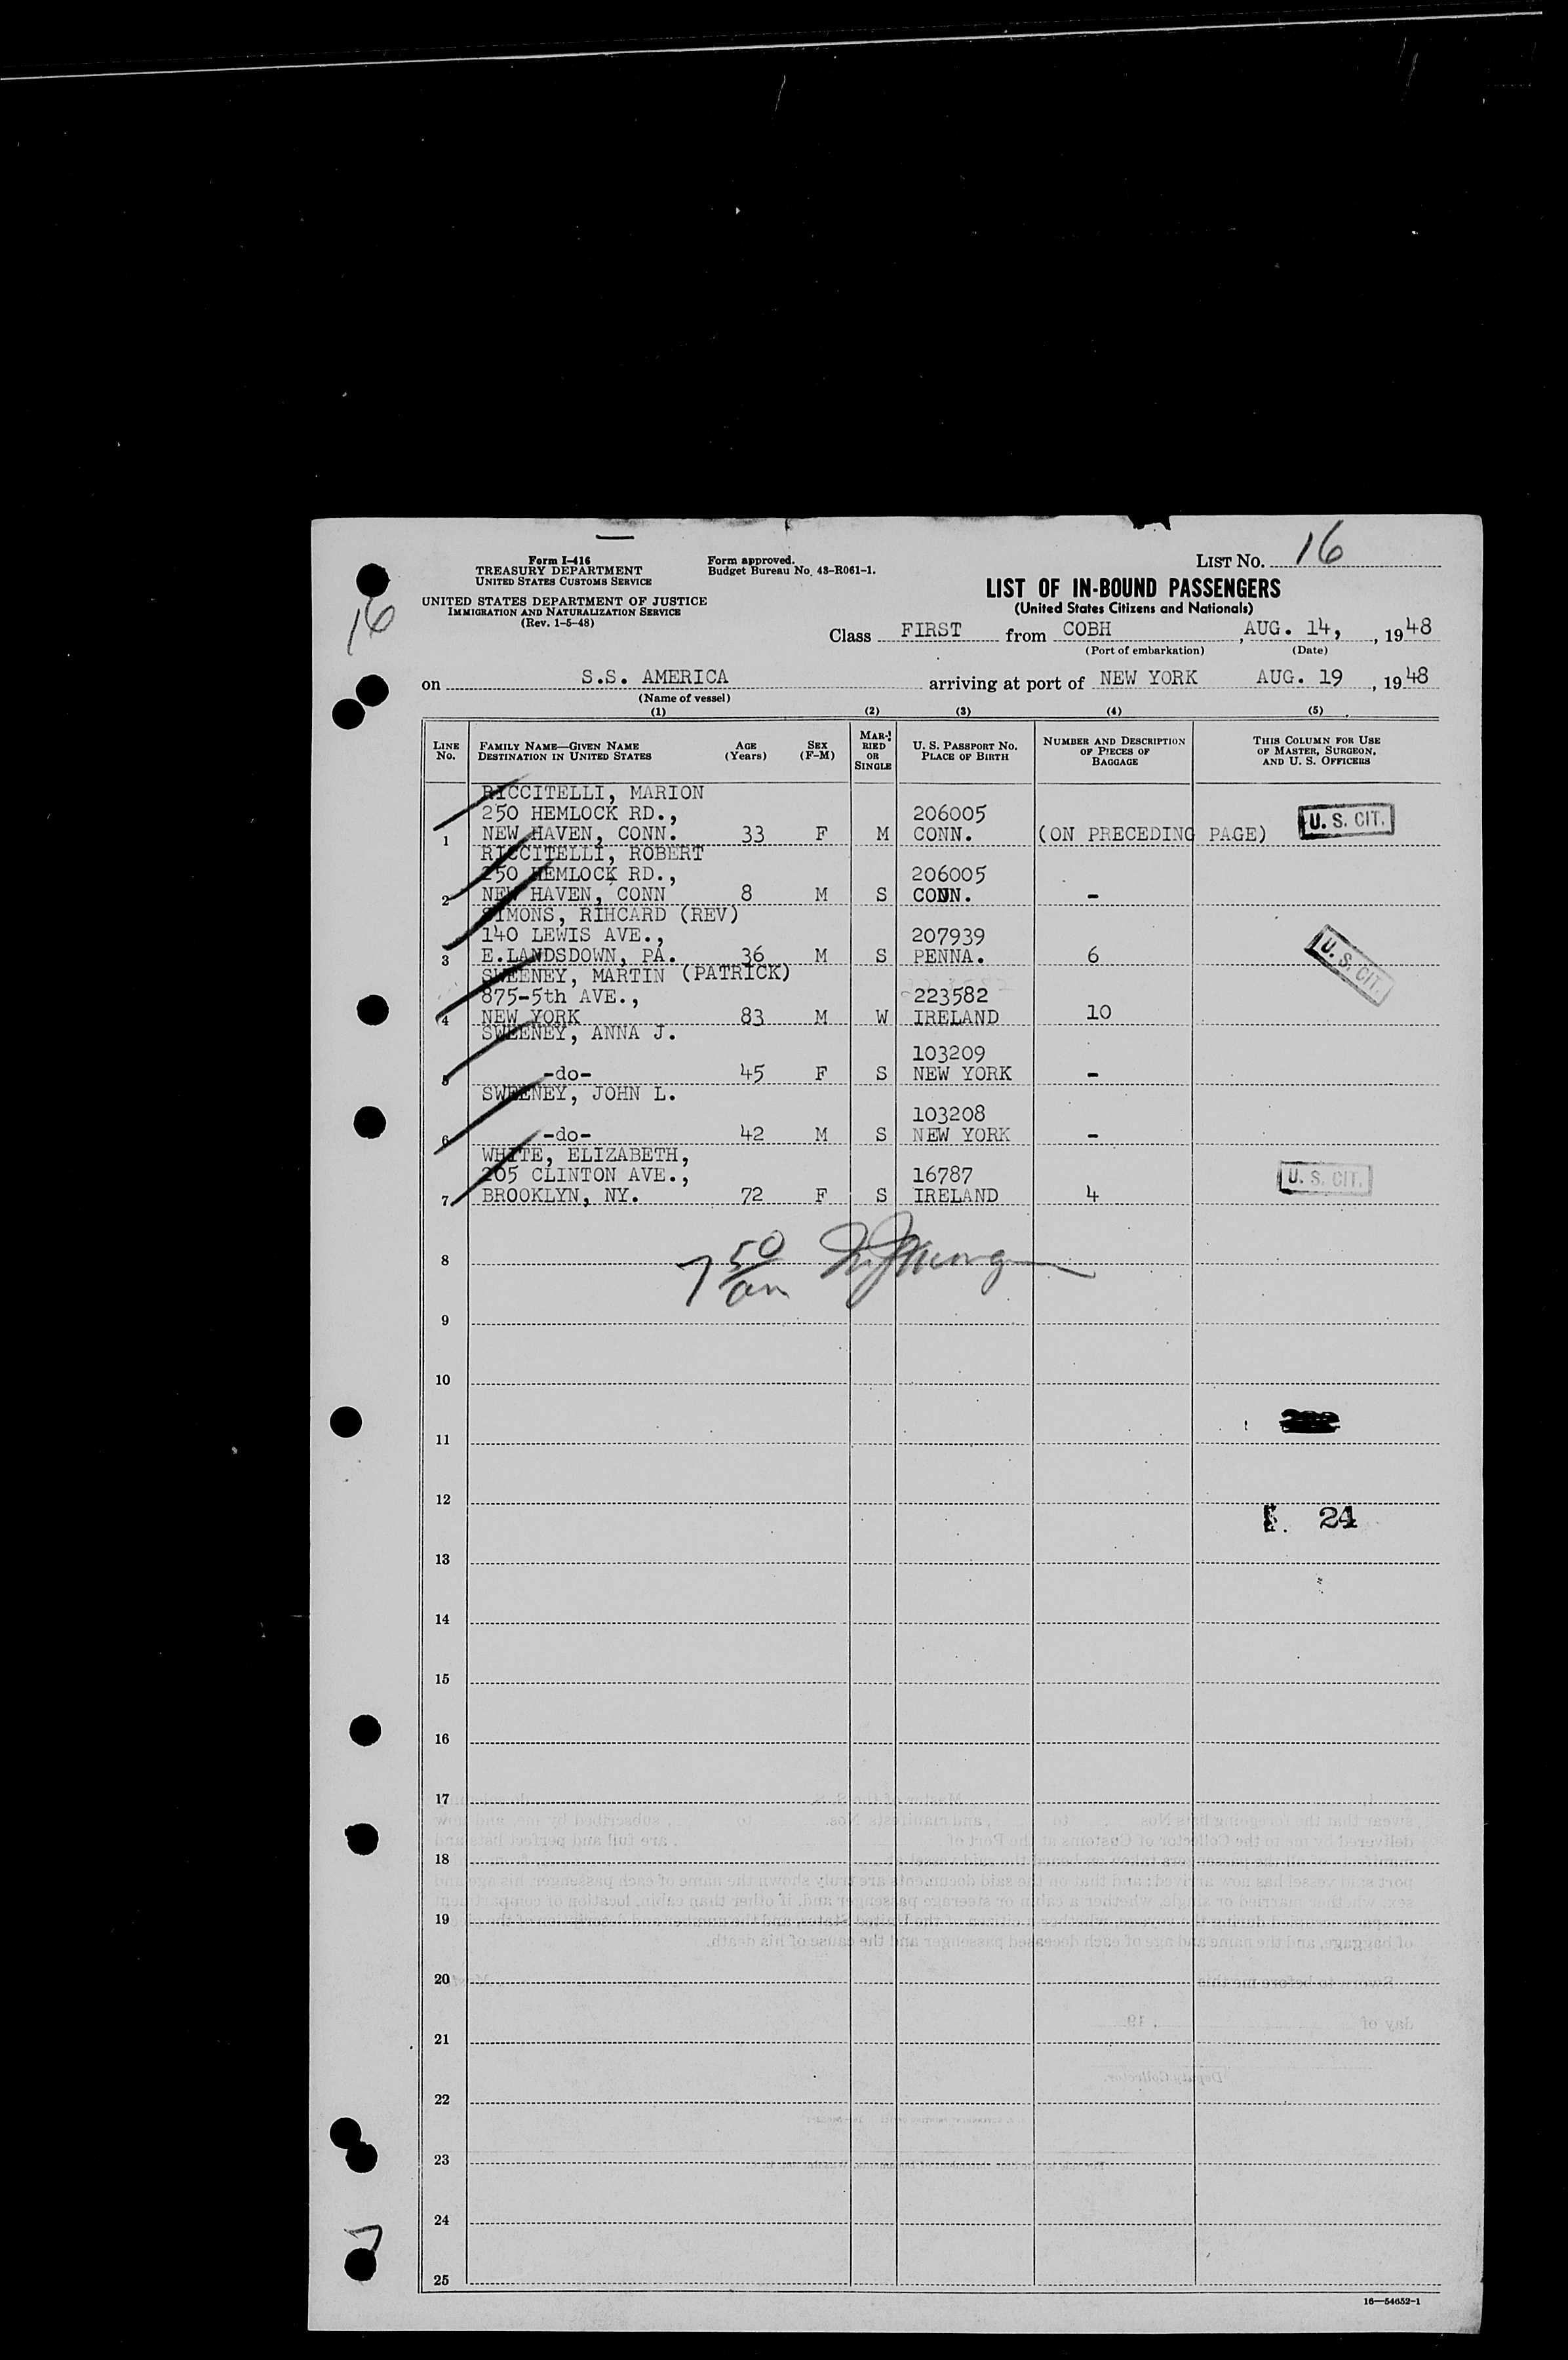 Form I-416
TREASURY DEPARTMENT
UNITED STATES CUSTOMS SERVICE
UNITED STATES DEPARTMENT OF JUSTICE
IMMIGRATION AND NATURALIZATION SERVICE
(Rev. 1-5-48)
Form approved.
Budget Bureau No. 43-R061-1.
LIST NO. 16
16
LIST OF IN-BOUND PASSENGERS
(United States Citizens and Nationals)
Class FIRST from COBH, AUG. 14, , 1948
(Port of embarkation) (Date)
on S.S. AMERICA arriving at port of NEW YORK AUG. 19, 1948
(Name of vessel)
(1) (2) (3) (4) (5)
LINE NO. FAMILY NAME—GIVEN NAME DESTINATION IN UNITED STATES AGE (Years) SEX (F-M) MARRIED OR SINGLE U. S. PASSPORT NO. PLACE OF BIRTH NUMBER AND DESCRIPTION OF PIECES OF BAGGAGE THIS COLUMN FOR USE OF MASTER, SURGEON, AND U. S. OFFICERS
RICCITELLI, MARION
250 HEMLOCK RD., 206005
1 NEW HAVEN, CONN. 33 F M CONN. (ON PRECEDING PAGE) U. S. CIT.
RICCITELLI, ROBERT
250 HEMLOCK RD., 206005
2 NEW HAVEN, CONN 8 M S CONN. -
SIMONS, RIHCARD (REV)
140 LEWIS AVE., 207939
3 E.LANDSDOWN, PA. 36 M S PENNA. 6 U. S. CIT.
SWEENEY, MARTIN (PATRICK)
875-5th AVE., 223582
4 NEW YORK 83 M W IRELAND 10
SWEENEY, ANNA J.
103209
5 -do- 45 F S NEW YORK -
SWEENEY, JOHN L.
103208
6 -do- 42 M S NEW YORK -
WHITE, ELIZABETH,
205 CLINTON AVE., 16787
7 BROOKLYN, NY. 72 F S IRELAND 4 U. S. CIT.
7 50/am
8
9
10
11
12
24
13
14
15
16
17
18
19
20
21
22
23
24
7
25
16—54652-1